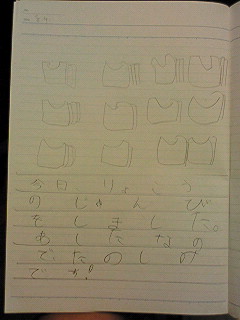 今日りょこう
のじゅんび
をしました。
あしたなの
でたのしみ
です!